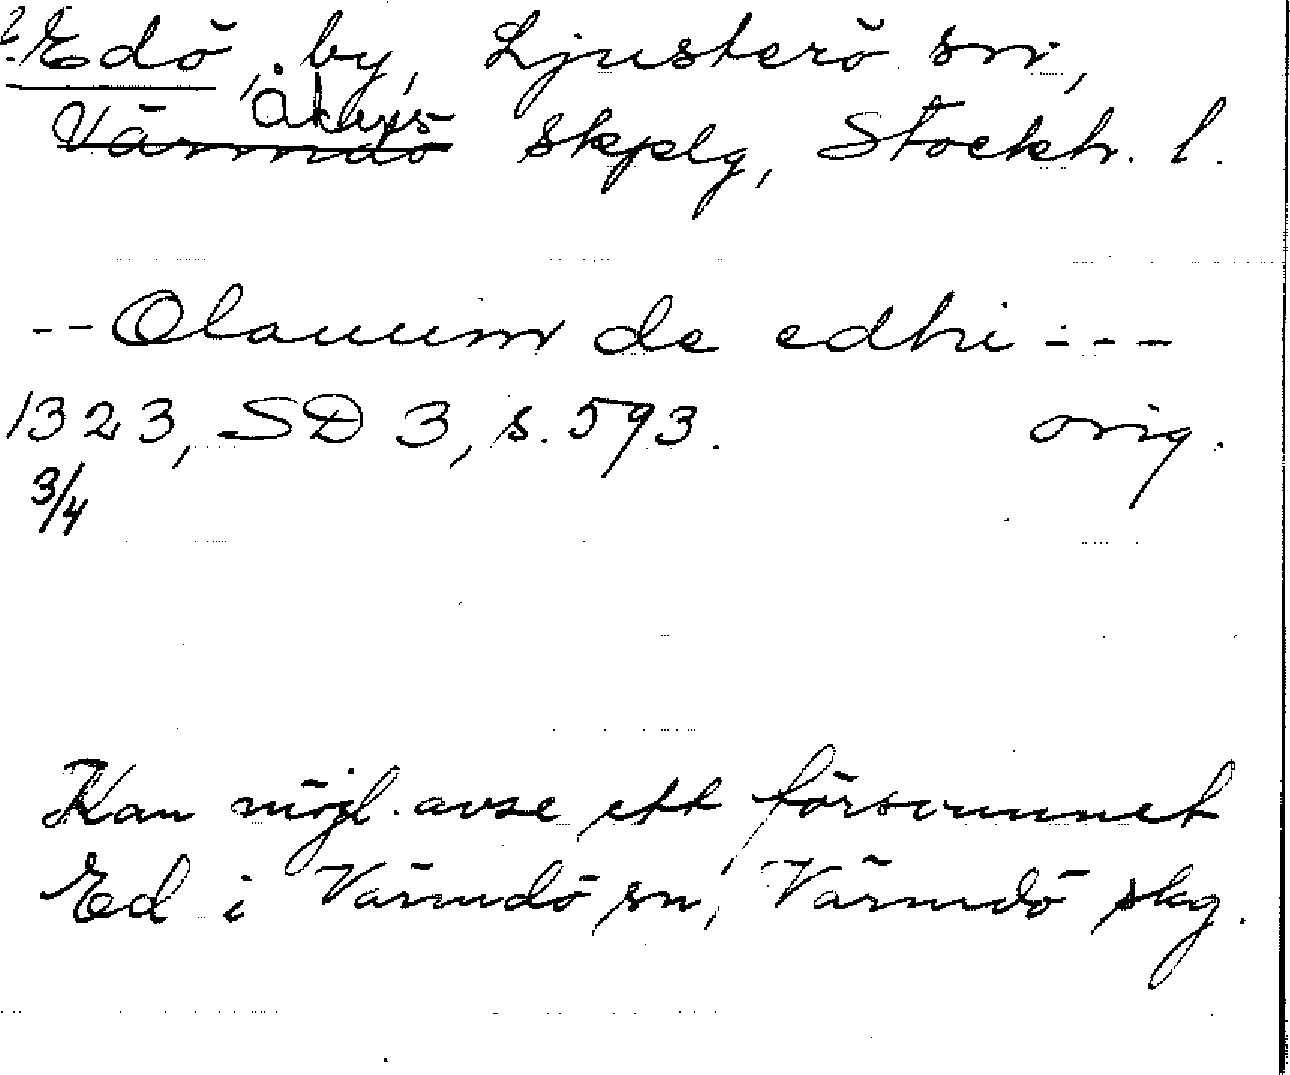 ? Edö, by, Ljusterö sn,
Åkers
Värmdö skplg, Stockh. l.
-- Olauum de edhi ---
1323, SD 3, s. 593. orig.
3/4
Kan möjl. avse ett försvunnet
Ed i Värmdö sn, Värmdö skg.